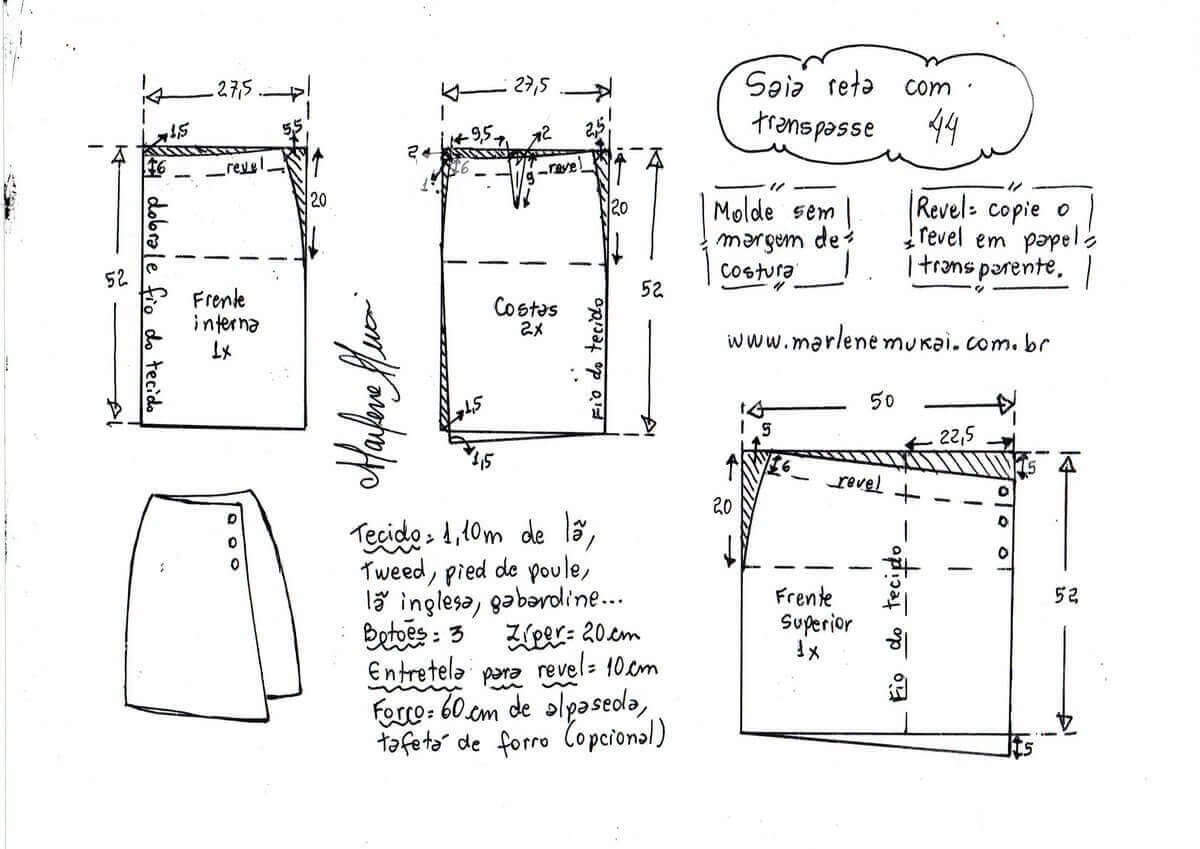 Saia reta com
transpasse 44
27,5
1,5
5,5
6
revel
20
52
dobra e fio do tecido
Frente
interna
1x
27,5
9,5
2
2,5
2
1
6
9
revel
20
52
Costas
2x
Fio do tecido
1,5
1,5
Molde sem
margem de
costura
Revel= copie o
revel em papel
transparente.
www.marlenemukai.com.br
Marlene Mukai
50
5
22,5
6
5
revel
20
52
Fio do tecido
Frente
Superior
1x
5
Tecido= 1,10m de lã,
Tweed, pied de poule,
lã inglesa, gabardine...
Botões= 3 Zíper= 20cm
Entretela para revel= 10cm
Forro= 60cm de alpaseda,
tafetá de forro (opcional)